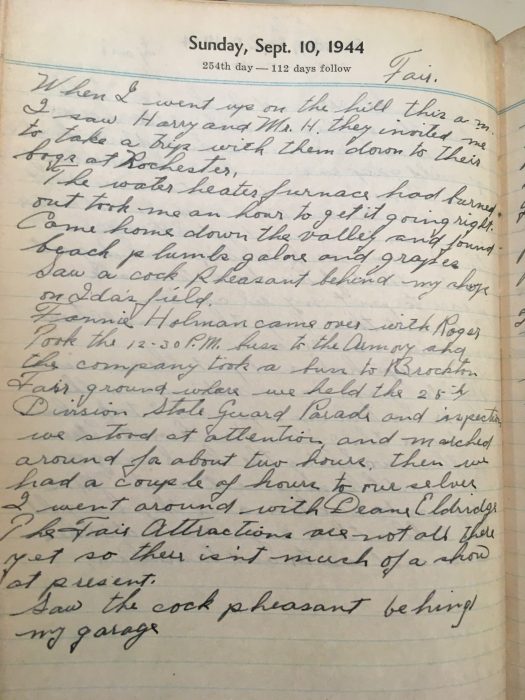 Sunday, Sept. 10, 1944
254th day — 112 days follow
Fair.
When I went up on the hill this a.m.
I saw Harry and Mr. H. they invited me
to take a trip with them down to their
bogs at Rochester.
The water heater furnace had burned
out took me an hour to get it going right.
Came home down the valley and found
beach plumbs galore and grapes
Saw a cock pheasant behind my shop
on Ida's field.
Fannie Holman came over with Roger
Took the 12-30 P.M. buss to the Armory and
the company took a bus to Brockton
Fair ground where we held the 25th
Division State Guard Parade and inspection
we stood at attention and marched
around for about two hours, then we
had a couple of hours to our selves
I went around with Deane Eldridge
The Fair Attractions are not all there
yet so their isn't much of a show
at present.
Saw the cock pheasant behind
my garage